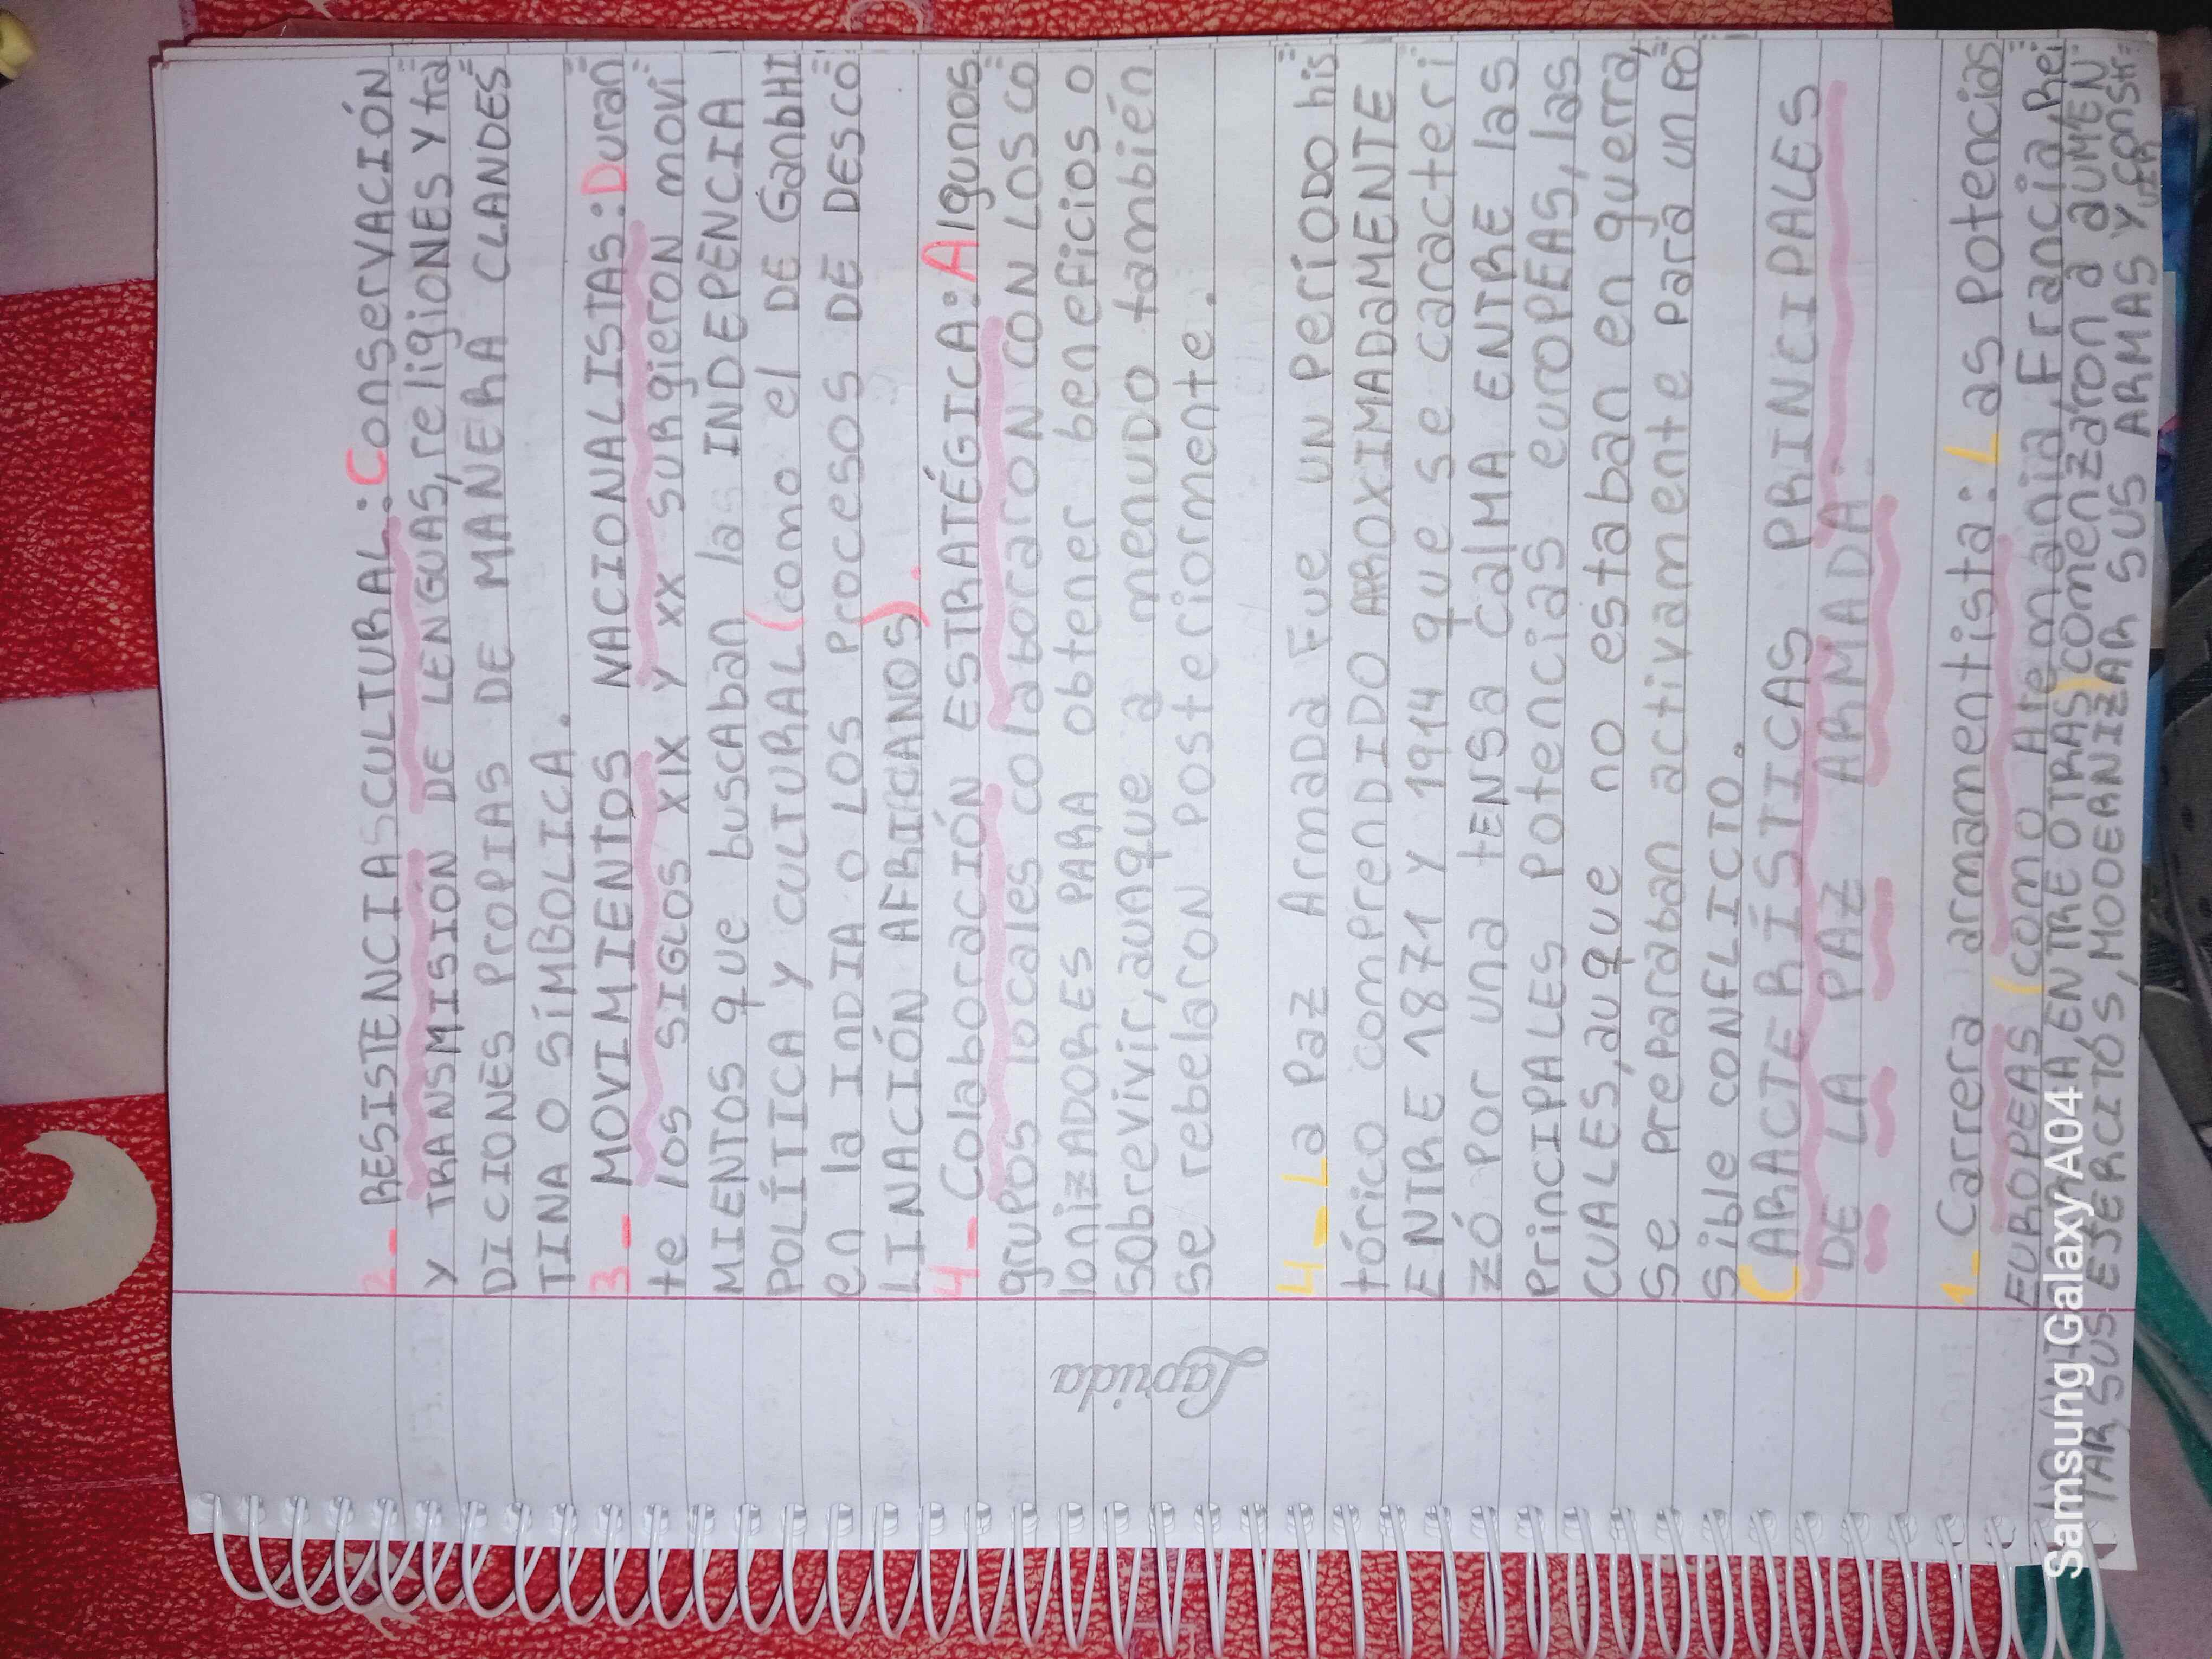 2- RESISTENCIAS CULTURAL: Conservación
y TRANSMISIÓN DE LENGUAS, religiones y tra=
DICIONES PROPIAS DE MANERA CLANDES=
TINA O SÍMBOLICA.
3- MOVIMIENTOS NACIONALISTAS: Duran=
te los SIGLOS XIX y XX surgieron movi=
MIENTOS que buscaban las INDEPENCIA
POLÍTICA y CULTURAL (como el DE GanDHI
en la INDIA O LOS PROCESOS DE DESCO=
LINACIÓN AFRICANOS).
4- Colaboración ESTRATÉGICA: Algunos
grupos locales colaboraron con los co=
lonizADORES PARA obtener beneficios o
sobrevivir, aunque a menudo también
se rebelaron posteriormente.
4- La Paz Armada Fue un PeríoDO his=
tórico comprendIDO APROXIMADAMENTE
ENTRE 1871 y 1914 que se caracteri=
zó por una tensa calMA ENTRE las
PrincIPALES Potencias euroPEAS, las
CUALES, auque no estaban en guerra,
se preparaban activamente para un PO=
sible CONFLICTO.
CARACTERÍSTICAS PRINCIPALES
DE LA PAZ ARMADA.
1- Carrera armamentista: Las Potencias
EUROPEAS (como Alemania, Francia, Rei=
A, ENTRE OTRAS) comenzaron a aumEN=
TAR SUS EJERCITOS, MODERNIZAR SUS ARMAS y CONSTR=
UIR
Laprida
Samsung Galaxy A04